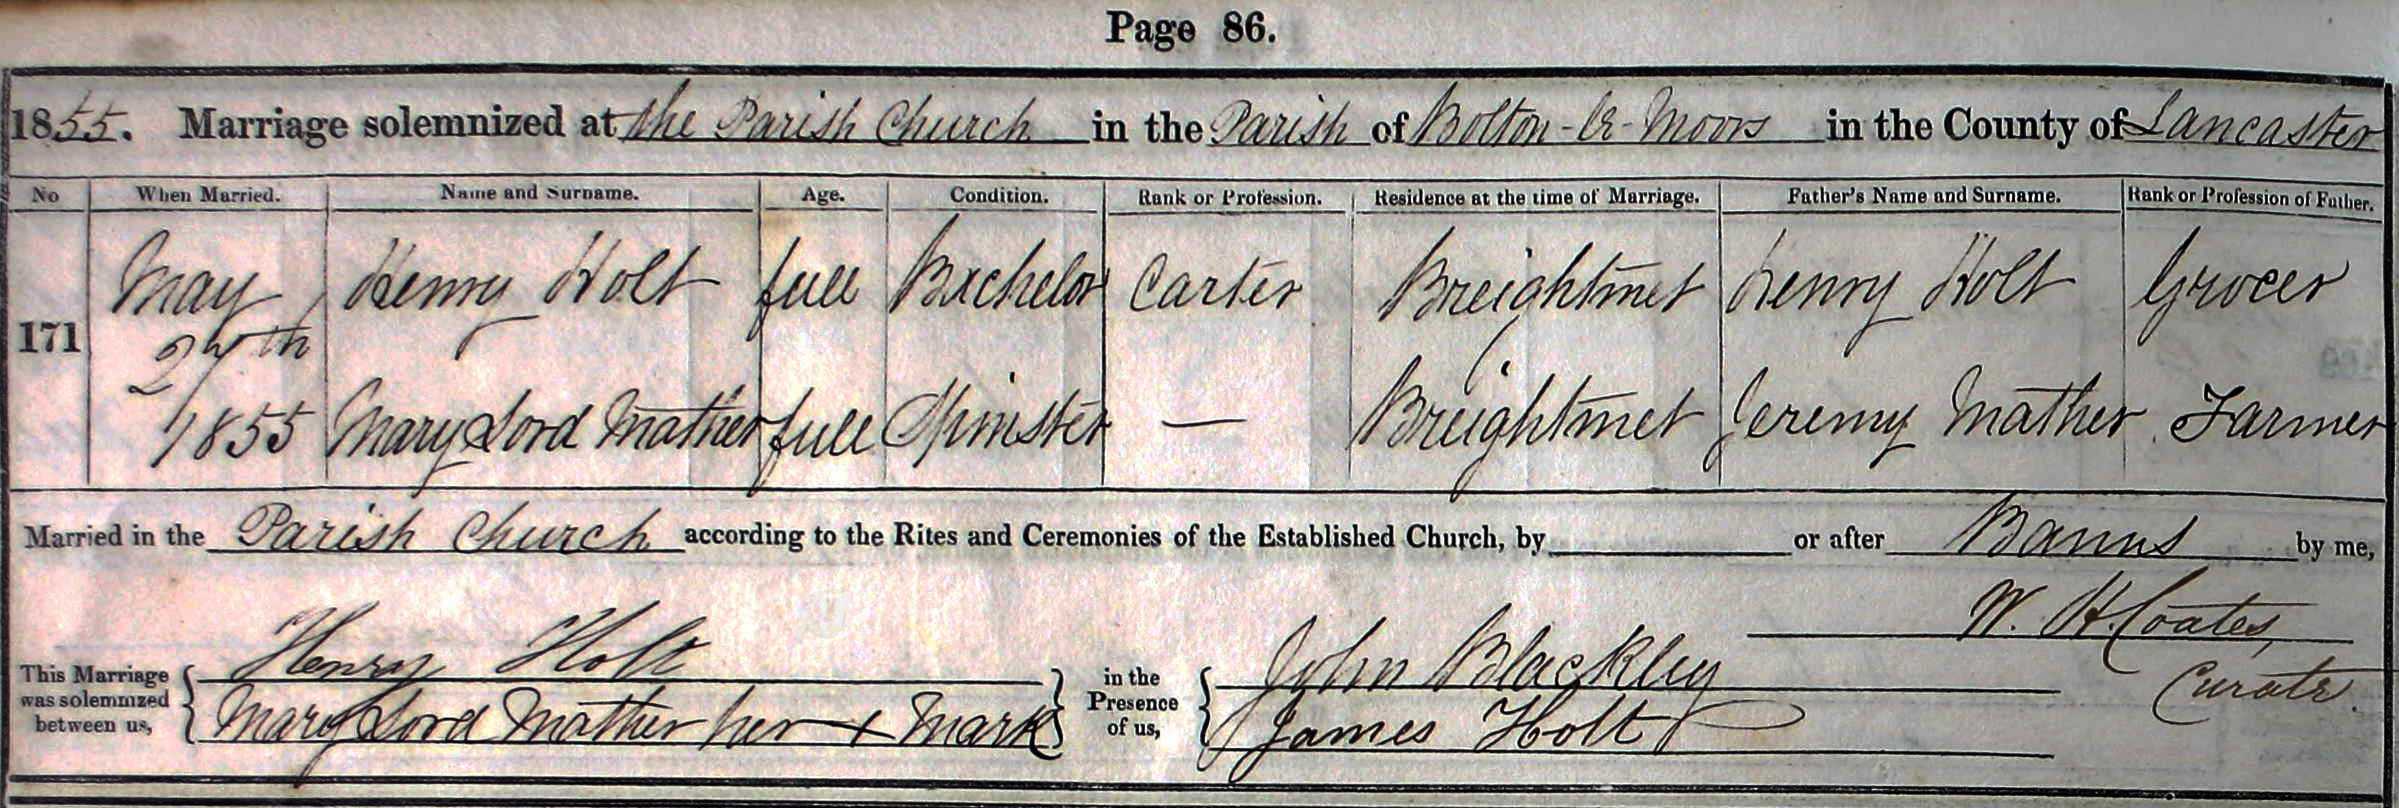 Page 86.
1855. Marriage solemnized at the Parish Church in the Parish of Bolton-le-Moors in the County of Lancaster
No When Married. Name and Surname. Age. Condition. Rank or Profession. Residence at the time of Marriage. Father's Name and Surname. Rank or Profession of Father.
May Henry Holt full Bachelor Carter Breightmet Henry Holt Grocer
171 27th
1855 Mary Lord Mather full Spinster — Breightmet Jeremy Mather Farmer
Married in the Parish Church according to the Rites and Ceremonies of the Established Church, by or after Banns by me,
W. H. Coates,
Curate.
This Marriage was solemnized between us,
Henry Holt
Mary Lord Mather her x Mark
in the Presence of us,
John Blackley
James Holt